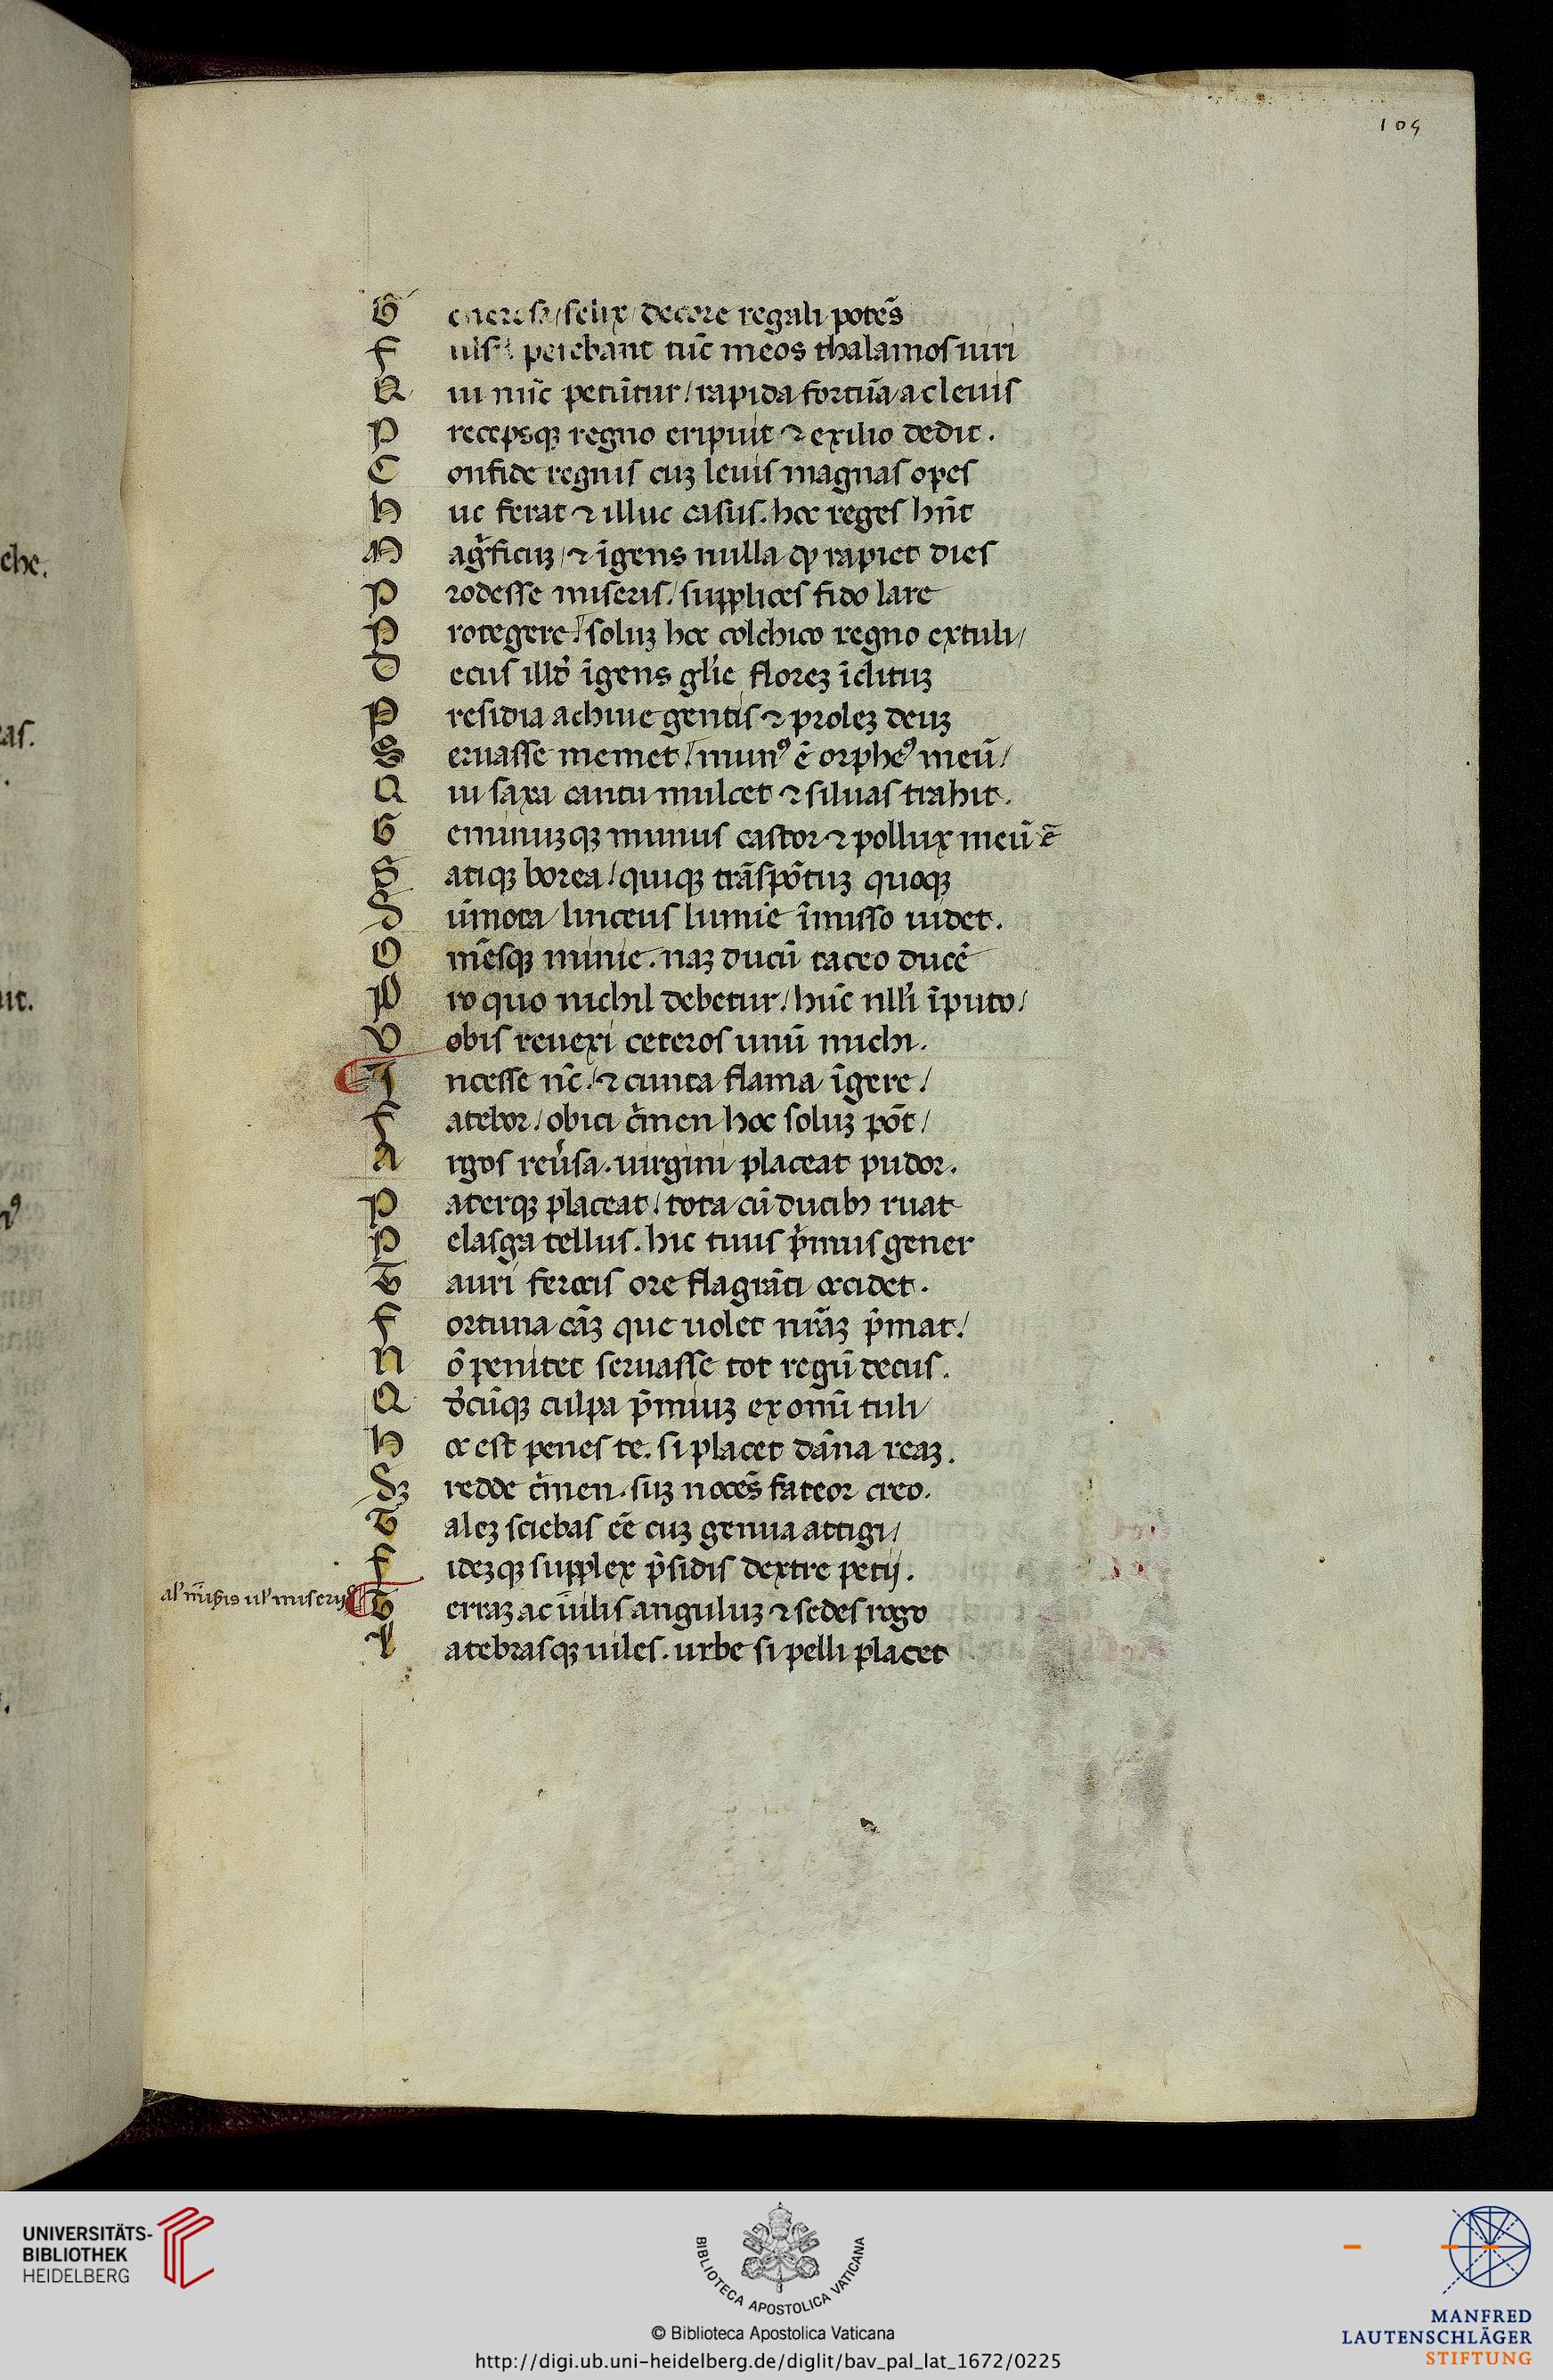 105
Generosa / felix / decore regali potẽs
Fulsi petebant tũc meos thalamos uiri
Qui nũc petũtur / rapida fortũa ac leuis
Precepsqꝫ regno eripuit ⁊ exilio dedit.
Confide regnis cuꝫ leuis magnas opes
Huc ferat ⁊ illuc casus. hoc reges hñt
Magr̃ficuꝫ / ⁊ ĩgens nulla qđ rapiet dies
Prodesse miseris / supplices fido lare
Protegere / soluꝫ hoc colchico regno extuli /
Decus illđ ĩgens gl̃ie floreꝫ ĩclituꝫ
Presidia achiue gentis ⁊ proleꝫ deuꝫ
Seruasse memet / munꝰ ẽ orpheꝰ meũ /
Qui saxa cantu mulcet ⁊ siluas trahit.
Geminuꝫqꝫ munus castor ⁊ pollux meũ ẽ
Satiqꝫ borea / quiqꝫ trãspõtuꝫ quoqꝫ
Sũmota linceus lumiẽ ĩmisso uidet.
Omẽsqꝫ minie. naꝫ ducũ taceo ducẽ
Pro quo nichil debetur / hũc nllĩ ĩputo /
Vobis reuexi ceteros unũ michi.
Incesse nc̃ / ⁊ cuncta flama ĩgere /
Fatebor / obici c̃men hoc soluꝫ põt /
Argos reũsa. uirgini placeat pudor.
Paterqꝫ placeat / tota cũ ducibꝫ ruat
Pelasga tellus. hic tuus p̃mus gener
Tauri ferocis ore flagrãti occidet.
Fortuna cãꝫ que uolet nrãꝫ p̃mat /
Nõ penitet seruasse tot regũ decus.
Qđcũqꝫ culpa p̃miuꝫ ex omĩ tuli /
Hoc est penes te. si placet dãna reaꝫ.
Sꝫ redde c̃men. suꝫ nocẽs fateor creo.
Taleꝫ sciebas cẽ cuꝫ genua attigi /
Fideꝫqꝫ supplex p̃sidis dextre petij.
Terraꝫ ac uilis anguluꝫ ⁊ sedes rogo
Latebrasqꝫ uiles. urbe si pelli placet
che.
as.
ut.
UNIVERSITÄTS-
BIBLIOTHEK
HEIDELBERG
BIBLIOTECA APOSTOLICA VATICANA
© Biblioteca Apostolica Vaticana
http://digi.ub.uni-heidelberg.de/diglit/bav_pal_lat_1672/0225
MANFRED
LAUTENSCHLÄGER
STIFTUNG